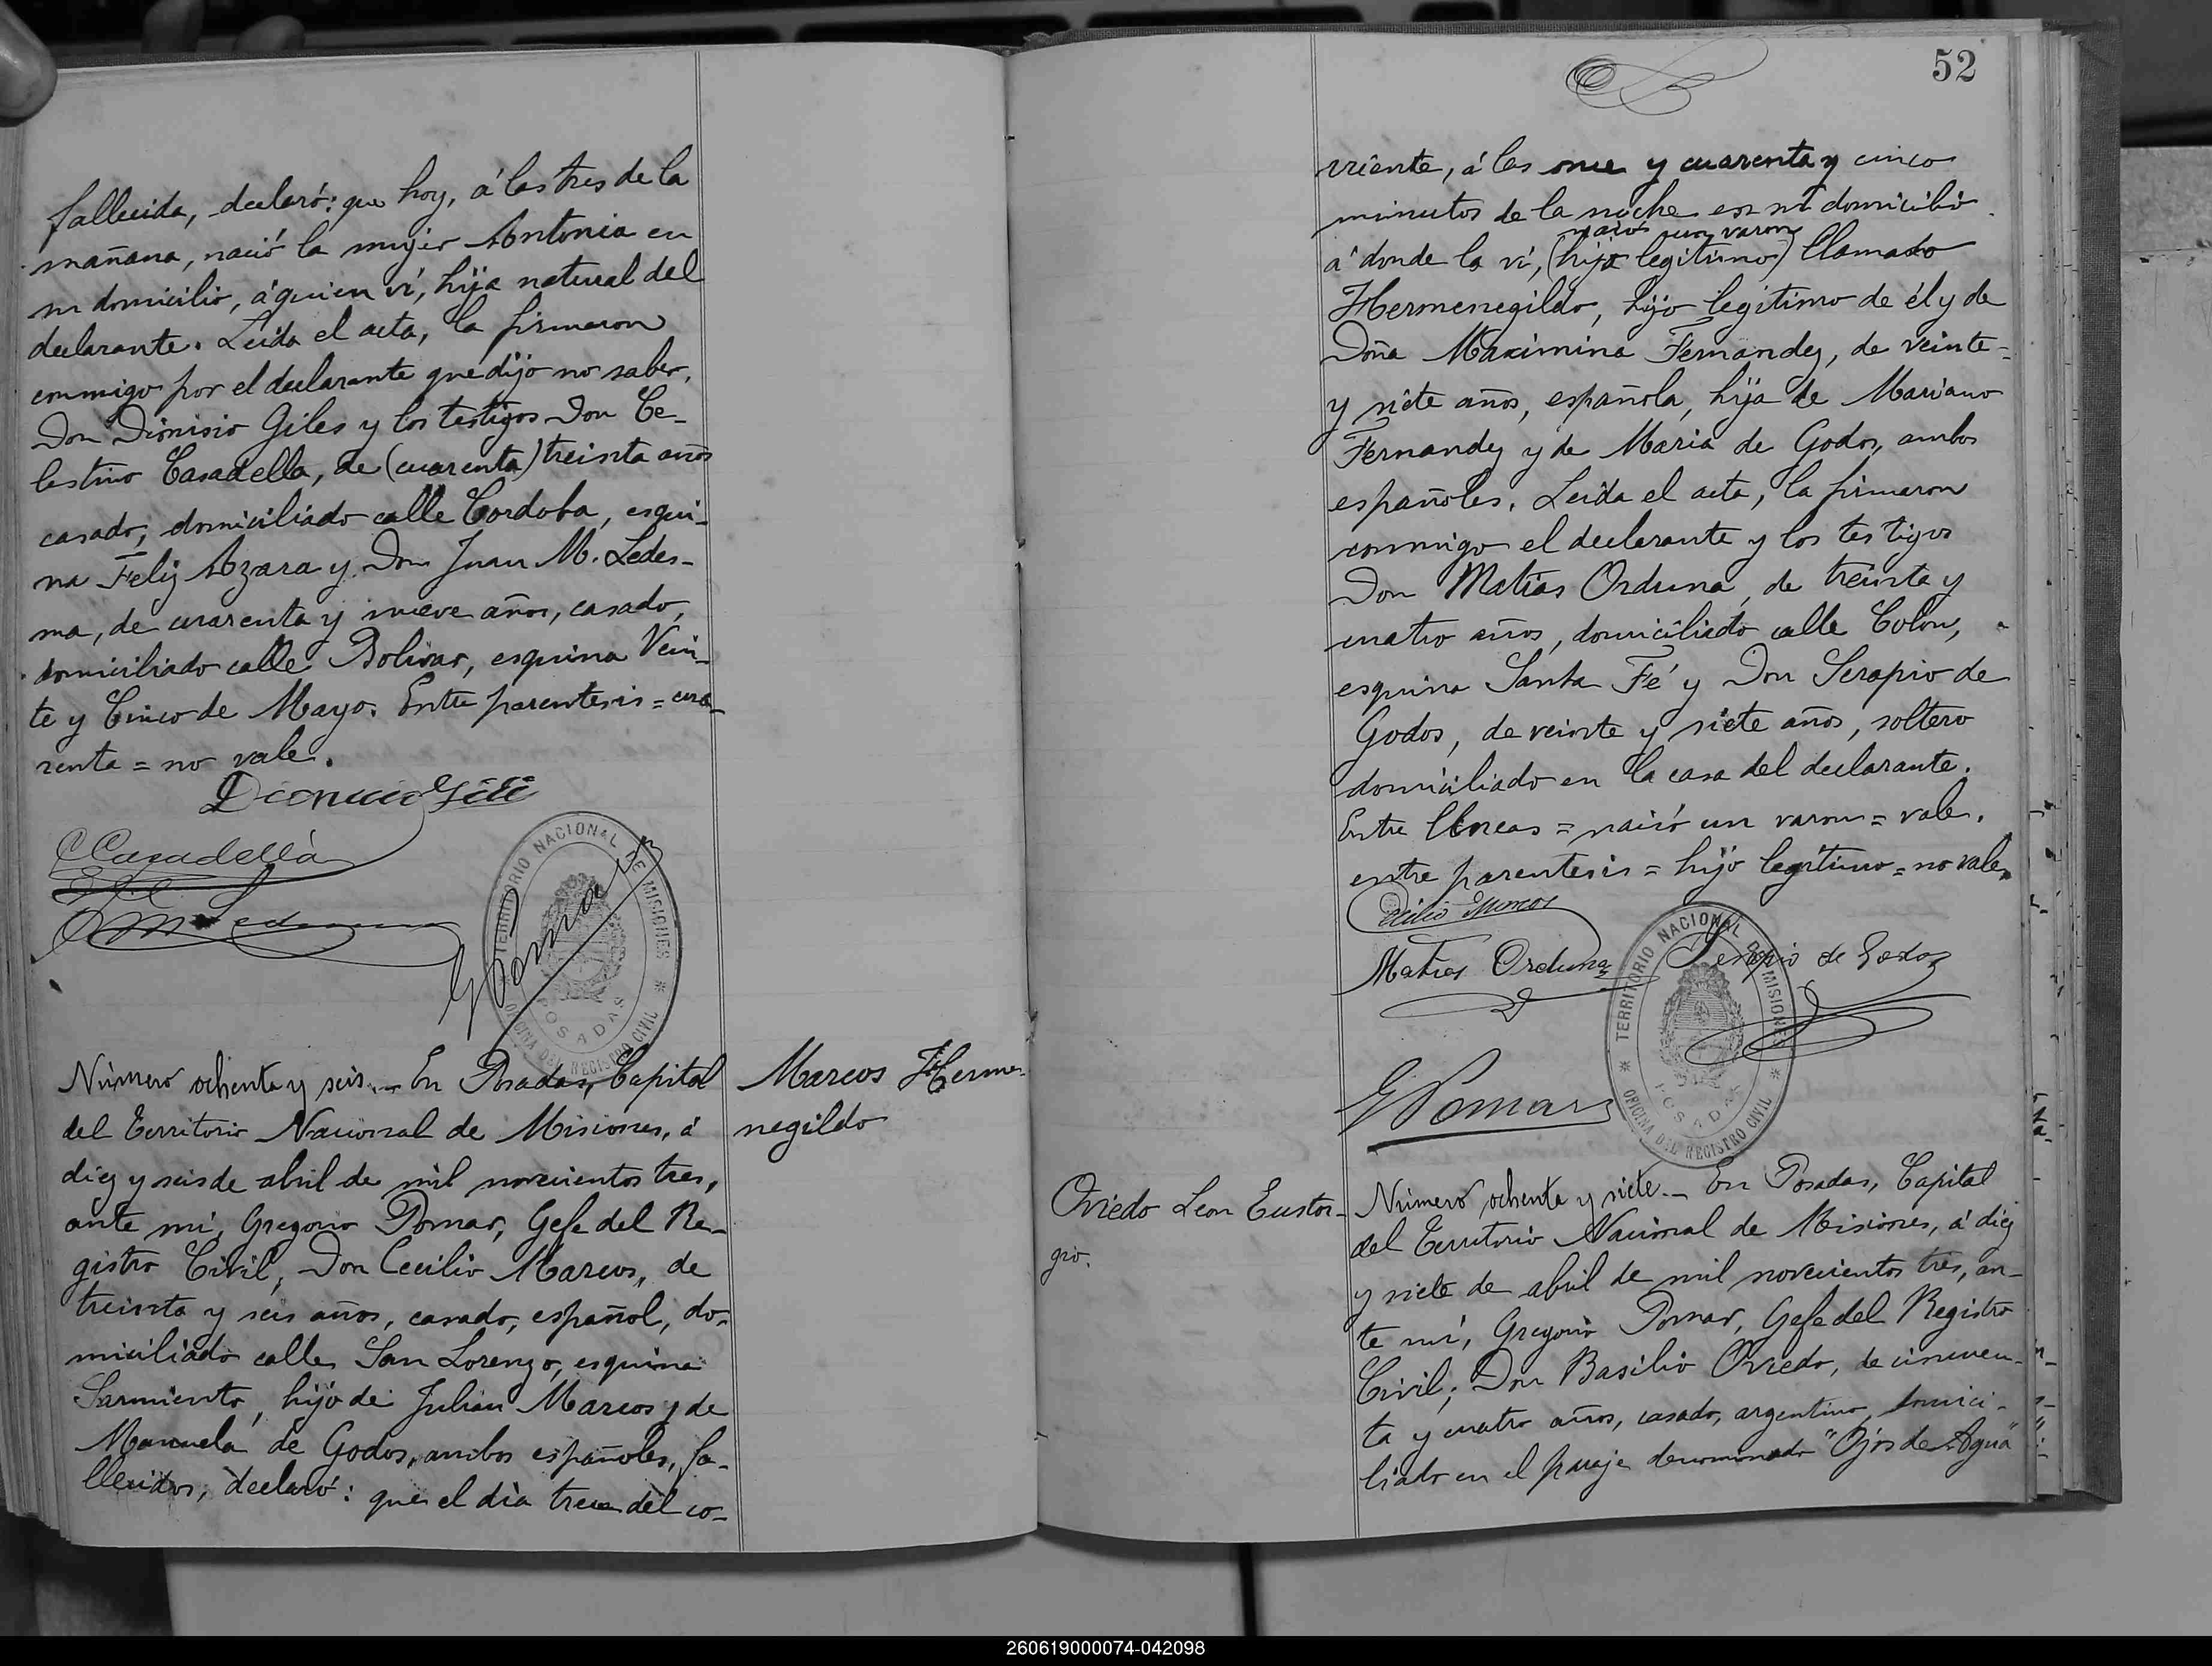 fallecida, declaró: que hoy, á las tres de la
mañana, nació la mujer Antonia en
su domicilio, á quien ví, hija natural del
declarante. Leida el acta, la firmaron
conmigo por el declarante que dijo no saber,
Don Dionisio Giles y los testigos Don Ce-
lestino Casadella, de (cuarenta) treinta años
casado, domiciliado calle Cordoba, esqui-
na Feliz Azara y Don Juan M. Ledes-
ma, de cuarenta y nueve años, casado,
domiciliado calle Bolivar, esquina Vein-
te y Cinco de Mayo. Entre parentesis = cua-
renta = no vale.
Dionicio Gili
C Casadellà
J M Ledesma
G Pomar
TERRITORIO NACIONAL DE MISIONES
POSADAS
OFICINA DEL REGISTRO CIVIL
Número ochenta y seis.- En Posadas, Capital
del Territorio Nacional de Misiones, á
diez y seis de abril de mil novecientos tres,
ante mí, Gregorio Pomar, Gefe del Re-
gistro Civil, Don Cecilio Marcos, de
treinta y seis años, casado, español, do-
miciliado calle San Lorenzo, esquina
Sarmiento, hijo de Julian Marcos y de
Manuela de Godos, ambos españoles, fa-
llecidos, declaró: que el dia trece del co-
Marcos Herme-
negildo
52
rriente, á las once y cuarenta y cinco
minutos de la noche en su domicilio
nació un varon
á donde la ví, (hijo legitimo) llamado
Hermenegildo, hijo legitimo de él y de
Doña Maximina Fernandez, de veinte-
y siete años, española, hija de Mariano
Fernandez y de Maria de Godos, ambos
españoles. Leida el acta, la firmaron
conmigo el declarante y los testigos
Don Matias Orduna, de treinta y
cuatro años, domiciliado calle Colon,
esquina Santa Fé y Don Serapio de
Godos, de veinte y siete años, soltero
domiciliado en la casa del declarante.
Entre lineas = nació un varon = vale.
entre parentesis = hijo legitimo = no vale.
Cecilio Marcos
Matias Orduna
Serapio de Godos
G Pomar
TERRITORIO NACIONAL DE MISIONES
POSADAS
OFICINA DEL REGISTRO CIVIL
Oviedo Leon Eustor-
gio.
Número ochenta y siete.- En Posadas, Capital
del Territorio Nacional de Misiones, á diez
y siete de abril de mil novecientos tres, an-
te mí, Gregorio Pomar, Gefe del Registro
Civil; Don Basilio Oviedo, de cincuen-
ta y cuatro años, casado, argentino, domici-
liado en el paraje denominado "Ojos de Agua"
260619000074-042098